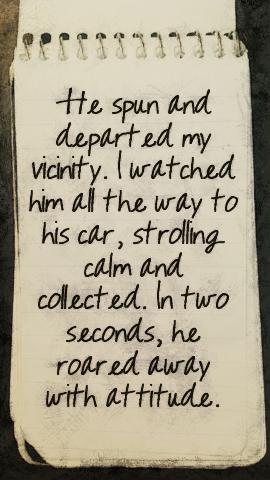 He spun and
departed my
vicinity. I watched
him all the way to
his car, strolling
calm and
collected. In two
seconds, he
roared away
with attitude.